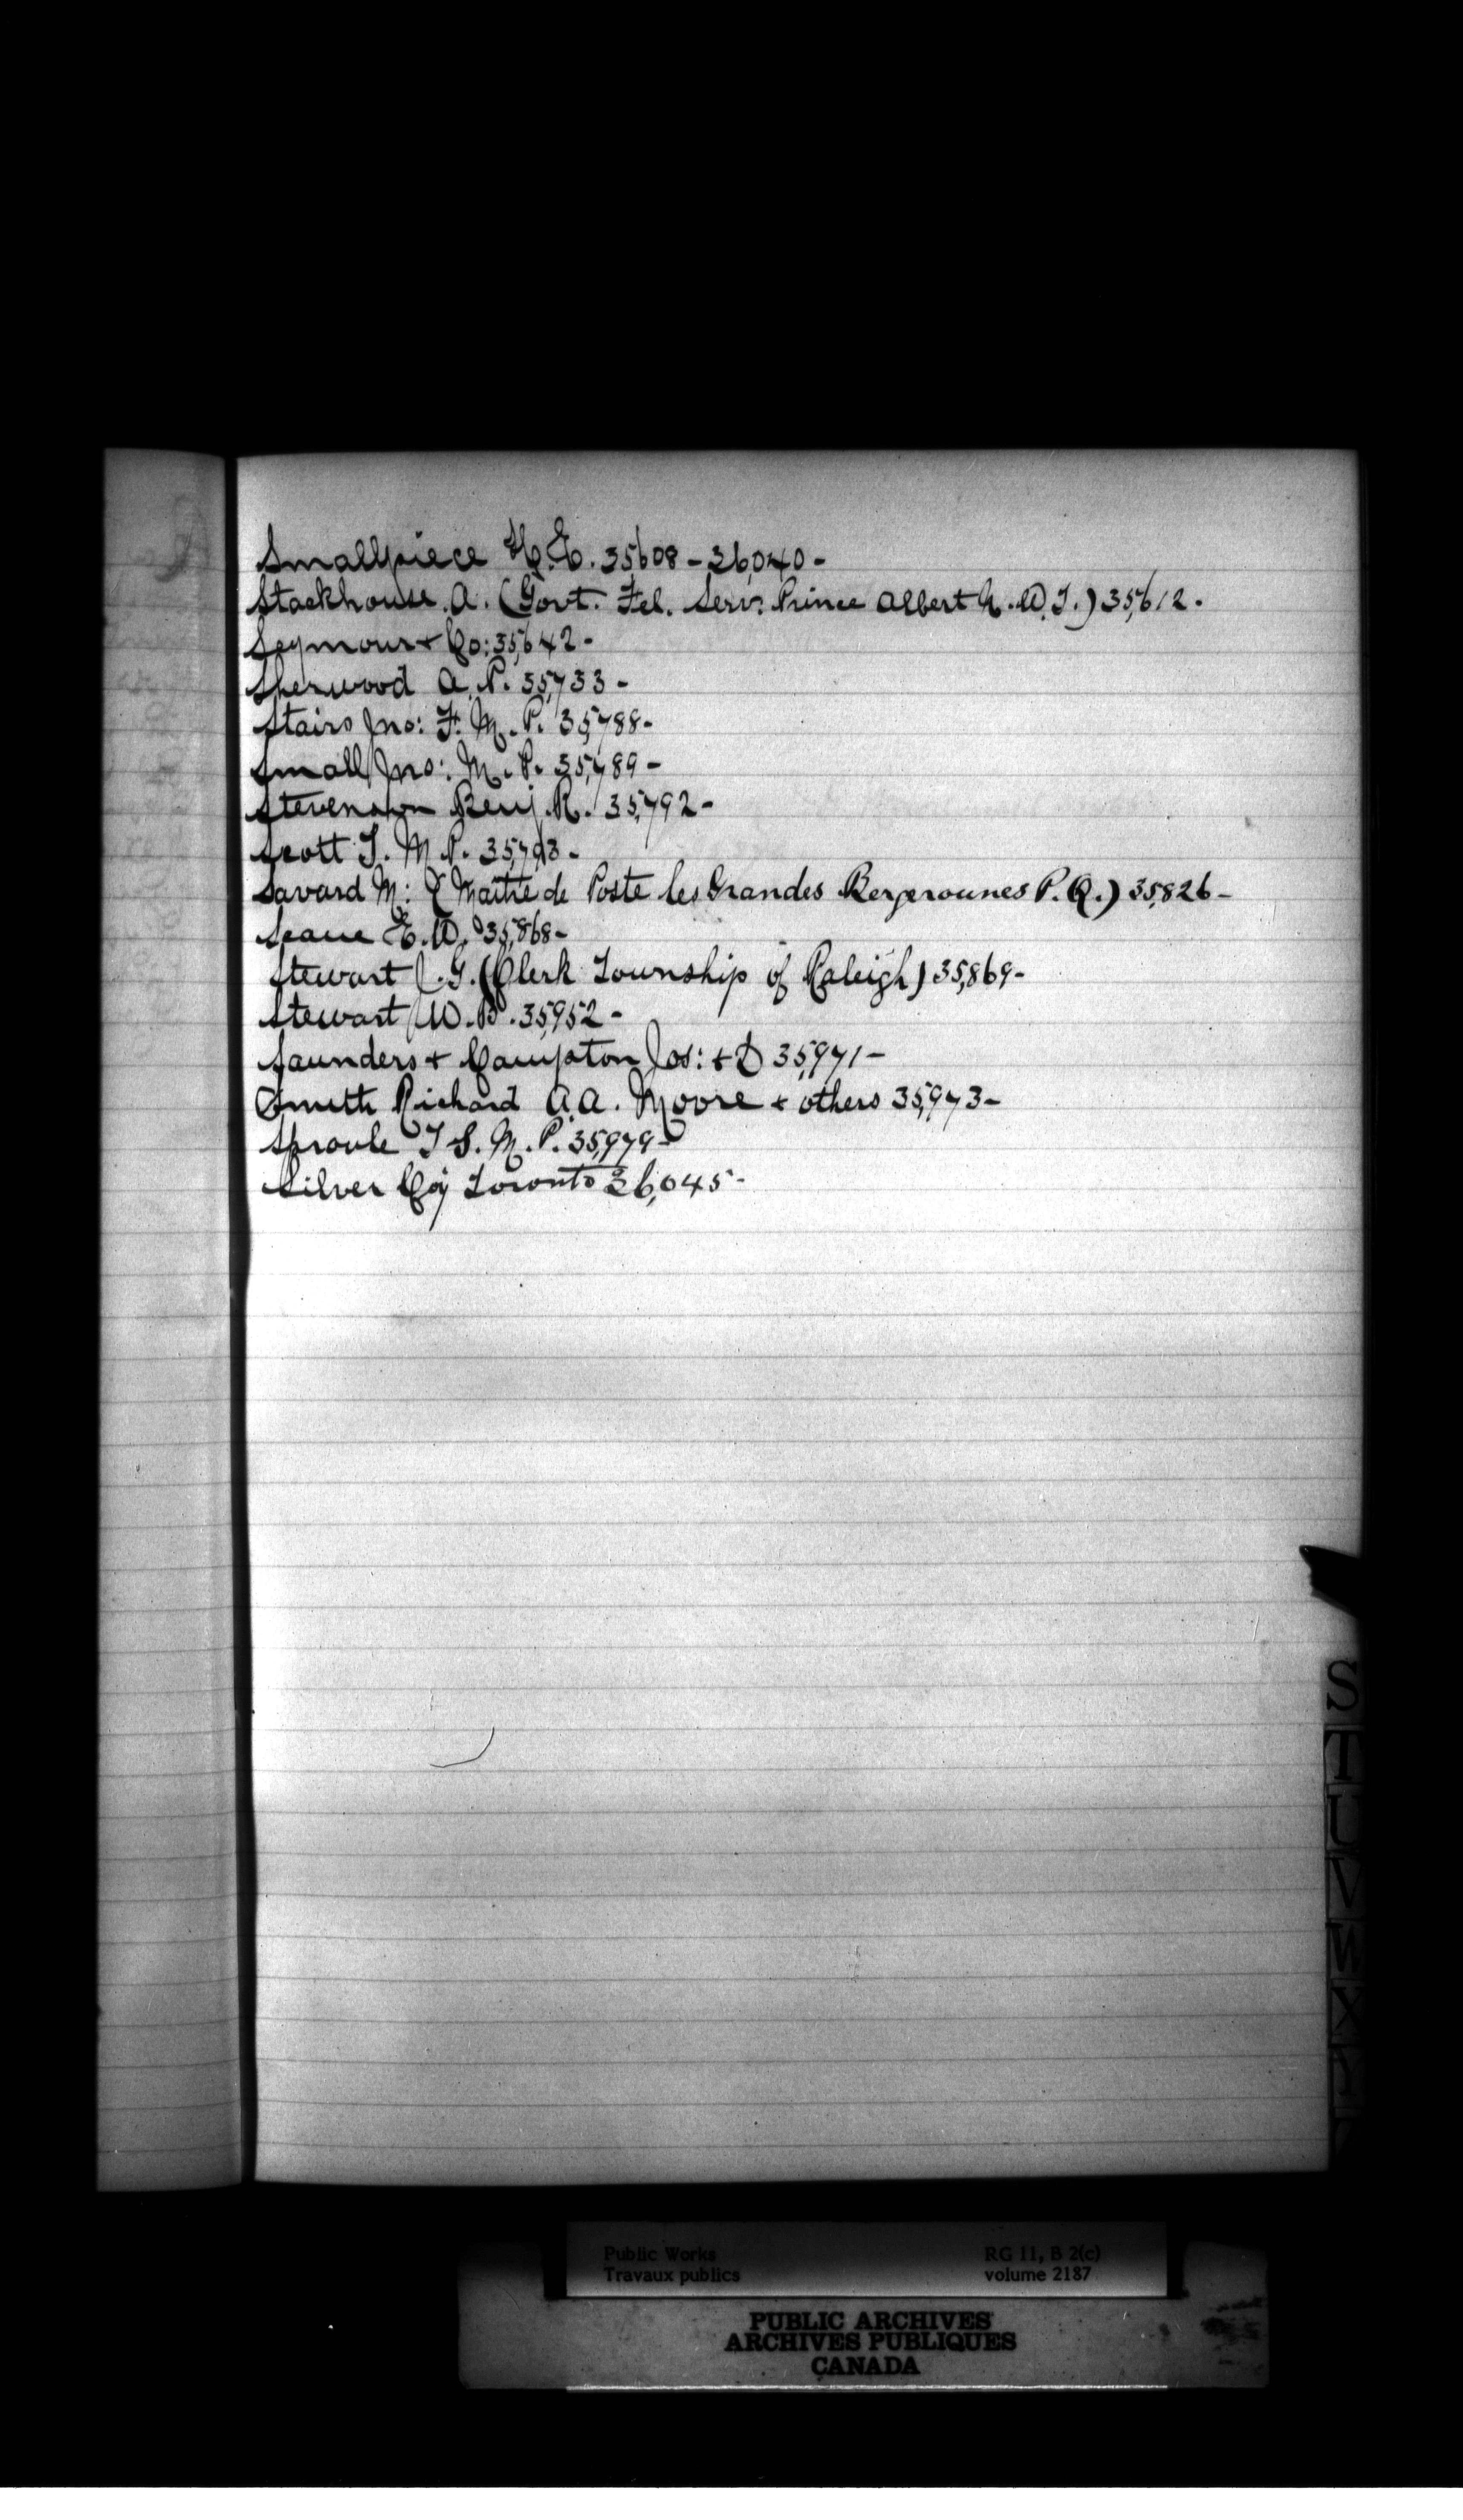 Smallpiece H. E. 35608 - 36,040 -
Stackhouse A. (Govt. Tel. Serv: Prince Albert N. W. T.) 35,612 -
Seymour + Co: 35,642 -
Sherwood A. P. 35,733 -
Stairs Jno: F. M. P. 35,788 -
Small Jno: M. P. 35,789 -
Stevenson Benj. R. 35,792 -
Scott T. M. P. 35,793 -
Savard M: (Maître de Poste les Grandes Bergeronnes P. Q.) 35,826 -
E. W. 35,868 -
Stewart J. G. (Clerk Township of Raleigh) 35,869 -
Stewart W. B. 35,952 -
Saunders + Campton Jos: + D 35,971 -
Smith Richard A. A. Moore + others 35,973 -
Sproule T S. M. P. 35,979 -
Silver Coy Toronto 36,045 -
S
T
U
V
W
X
Public Works
Travaux publics
RG 11, B 2(c)
volume 2187
PUBLIC ARCHIVES
ARCHIVES PUBLIQUES
CANADA